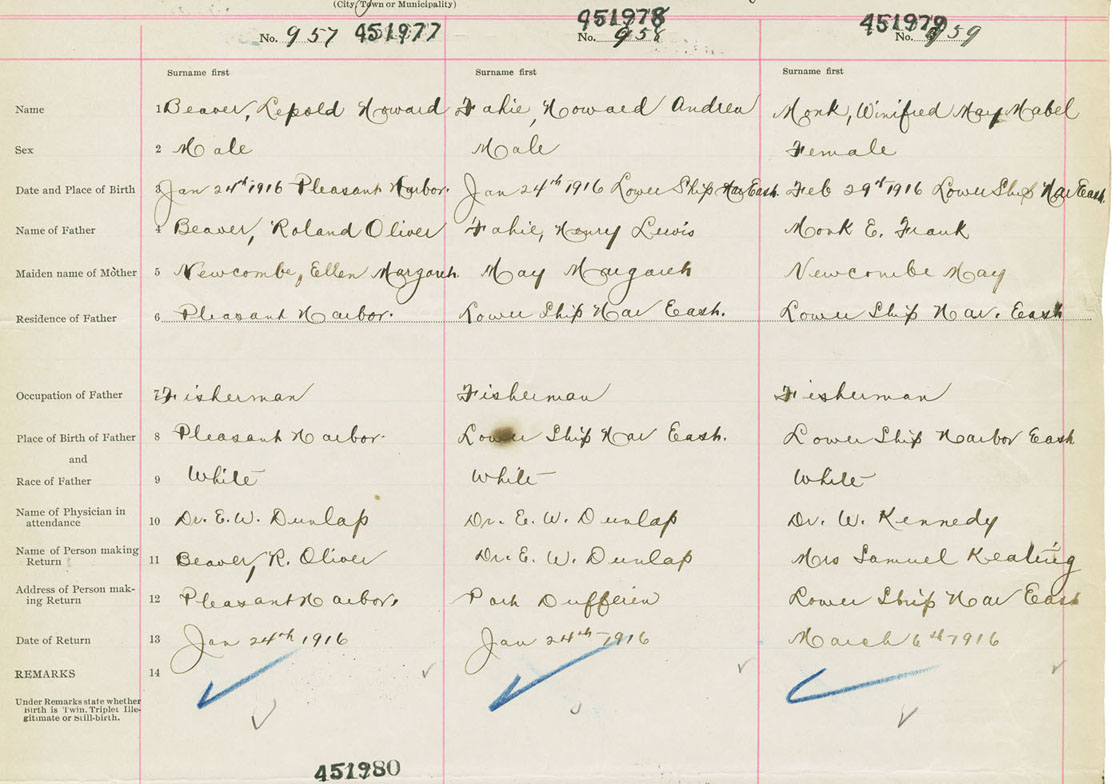 (City, Town or Municipality)
No. 957 451977
451978
No. 958
451979
No. 959
Surname first Surname first Surname first
Name 1 Beaver, Lepold Howard Fahie, Howard Andrew Monk, Winifred May Mabel
Sex 2 Male Male Female
Date and Place of Birth 3 Jan 24th 1916 Pleasant Harbor. Jan 24th 1916 Lower Ship Har East. Feb 29th 1916 Lower Ship Har East.
Name of Father 4 Beaver, Roland Oliver Fahie, Henry Lewis Monk E. Frank
Maiden name of Mother 5 Newcombe, Ellen Margaret. May Margaret Newcombe May
Residence of Father 6 Pleasant Harbor. Lower Ship Har East. Lower Ship Har. East
Occupation of Father 7 Fisherman Fisherman Fisherman
Place of Birth of Father 8 Pleasant Harbor. Lower Ship Har East. Lower Ship Harbor East
and
Race of Father 9 White White White
Name of Physician in
attendance 10 Dr. E. W. Dunlap Dr. E. W. Dunlap Dr. W. Kennedy
Name of Person making
Return 11 Beaver, R. Oliver Dr. E. W. Dunlap Mrs Samuel Keating
Address of Person mak-
ing Return 12 Pleasant Harbor. Port Dufferin Lower Ship Har East
Date of Return 13 Jan 24th 1916 Jan 24th 1916 March 6th 1916
REMARKS 14
Under Remarks state whether
Birth is Twin, Triplet Ille-
gitimate or Still-birth.
451980